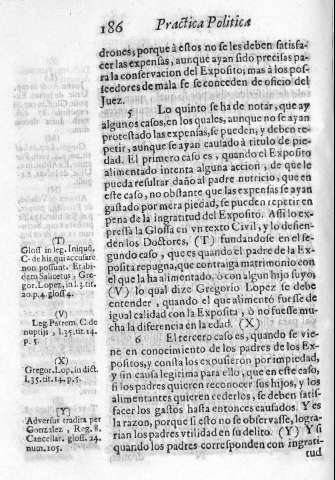 186 Practica Politica
drones; porque à estos no se les deben satisfa-
cer las expensas, aunque ayan sido precisas pa-
ra la conservacion del Exposito; mas à los pos-
seedores de mala fe se conceden de oficio del
Juez.
5 Lo quinto se ha de notar, que ay
algunos casos, en los quales, aunque no se ayan
protestado las expensas, se pueden, y deben re-
petir, aunque se ayan causado à titulo de pie-
dad. El primero caso es, quando el Exposito
alimentado intenta alguna accion, de que le
pueda resultar daño al padre nutricio, que en
este caso, no obstante que las expensas se ayan
gastado por mera piedad, se pueden repetir en
pena de la ingratitud del Exposito. Assi lo ex-
pressa la Glossa en vn texto Civil, y lo defien-
den los Doctores, (T) fundandose en el se-
gundo caso, que es quando el padre de la Ex-
posita repugna, que contraiga matrimonio con
el que la ha alimentado, ò con algun hijo suyo,
(V) lo qual dize Gregorio Lopez se debe
entender, quando el que alimentó fuesse de
igual calidad con la Exposita, ò no fuesse mu-
cha la diferencia en la edad. (X)
6 El tercero caso es, quando se vie-
ne en conocimiento de los padres de los Ex-
positos, y consta los expusieron por impiedad,
y sin causa legitima para ello, que en este caso,
si los padres quieren reconocer sus hijos, y los
alimentantes quieren cederlos, se deben satis-
facer los gastos hasta entonces causados. Y es
la razon, porque si esto no se observasse, logra-
rian los padres vtilidad en su delito. (Y) Y si
quando los padres corresponden con ingrati-
tud
(T)
Gloss in leg. Iniquũ,
C. de his, qui accusare
non possunt. Et ibi-
dem Salicetus, Gre-
gor. Lopez, in l. 3. tit.
20. p. 4. gloss 4.
(V)
Leg Patrem. C. de
nuptijs, l. 35. tit. 14.
p. 5.
(X)
Gregor. Lop. in dict.
l. 35. tit. 14. p. 5.
[Y]
Adversus tradita per
Gonzalez, Reg. 8.
Cancellar. gloss. 24.
num. 105.